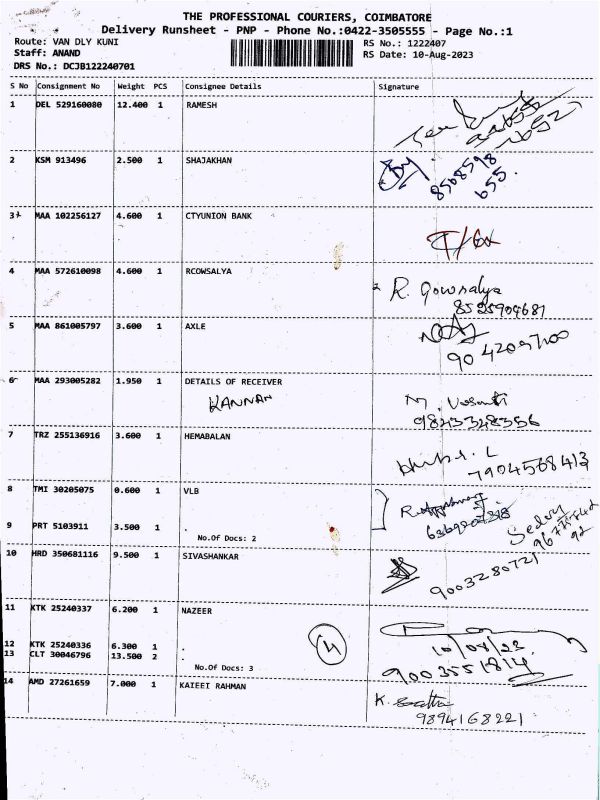 THE PROFESSIONAL COURIERS, COIMBATORE
Delivery Runsheet - PNP - Phone No.:0422-3505555 - Page No.:1
Route: VAN DLY KUNI
RS No.: 1222407
Staff: ANAND
RS Date: 10-Aug-2023
DRS No.: DCJB122240701
S No Consignment No Weight PCS Consignee Details Signature
1 DEL 529160080 12.400 1 RAMESH
2 KSM 913496 2.500 1 SHAJAKHAN
8508598
655.
3 MAA 102256127 4.600 1 CTYUNION BANK
4 MAA 572610098 4.600 1 RCOWSALYA
R. Gowsalya
8525904681
5 MAA 861005797 3.600 1 AXLE
9042097100
6 MAA 293005282 1.950 1 DETAILS OF RECEIVER
KANNAN
9843348356
7 TRZ 255136916 3.600 1 HEMABALAN
7904568413
8 TMI 30205075 0.600 1 VLB
9 PRT 5103911 3.500 1 .
No.Of Docs: 2
10 HRD 350681116 9.500 1 SIVASHANKAR
9003280721
11 KTK 25240337 6.200 1 NAZEER
10/08/23
12 KTK 25240336 6.300 1 .
13 CLT 30046796 13.500 2
9003551814
No.Of Docs: 3
14 AMD 27261659 7.000 1 KAIEEI RAHMAN
9894168221